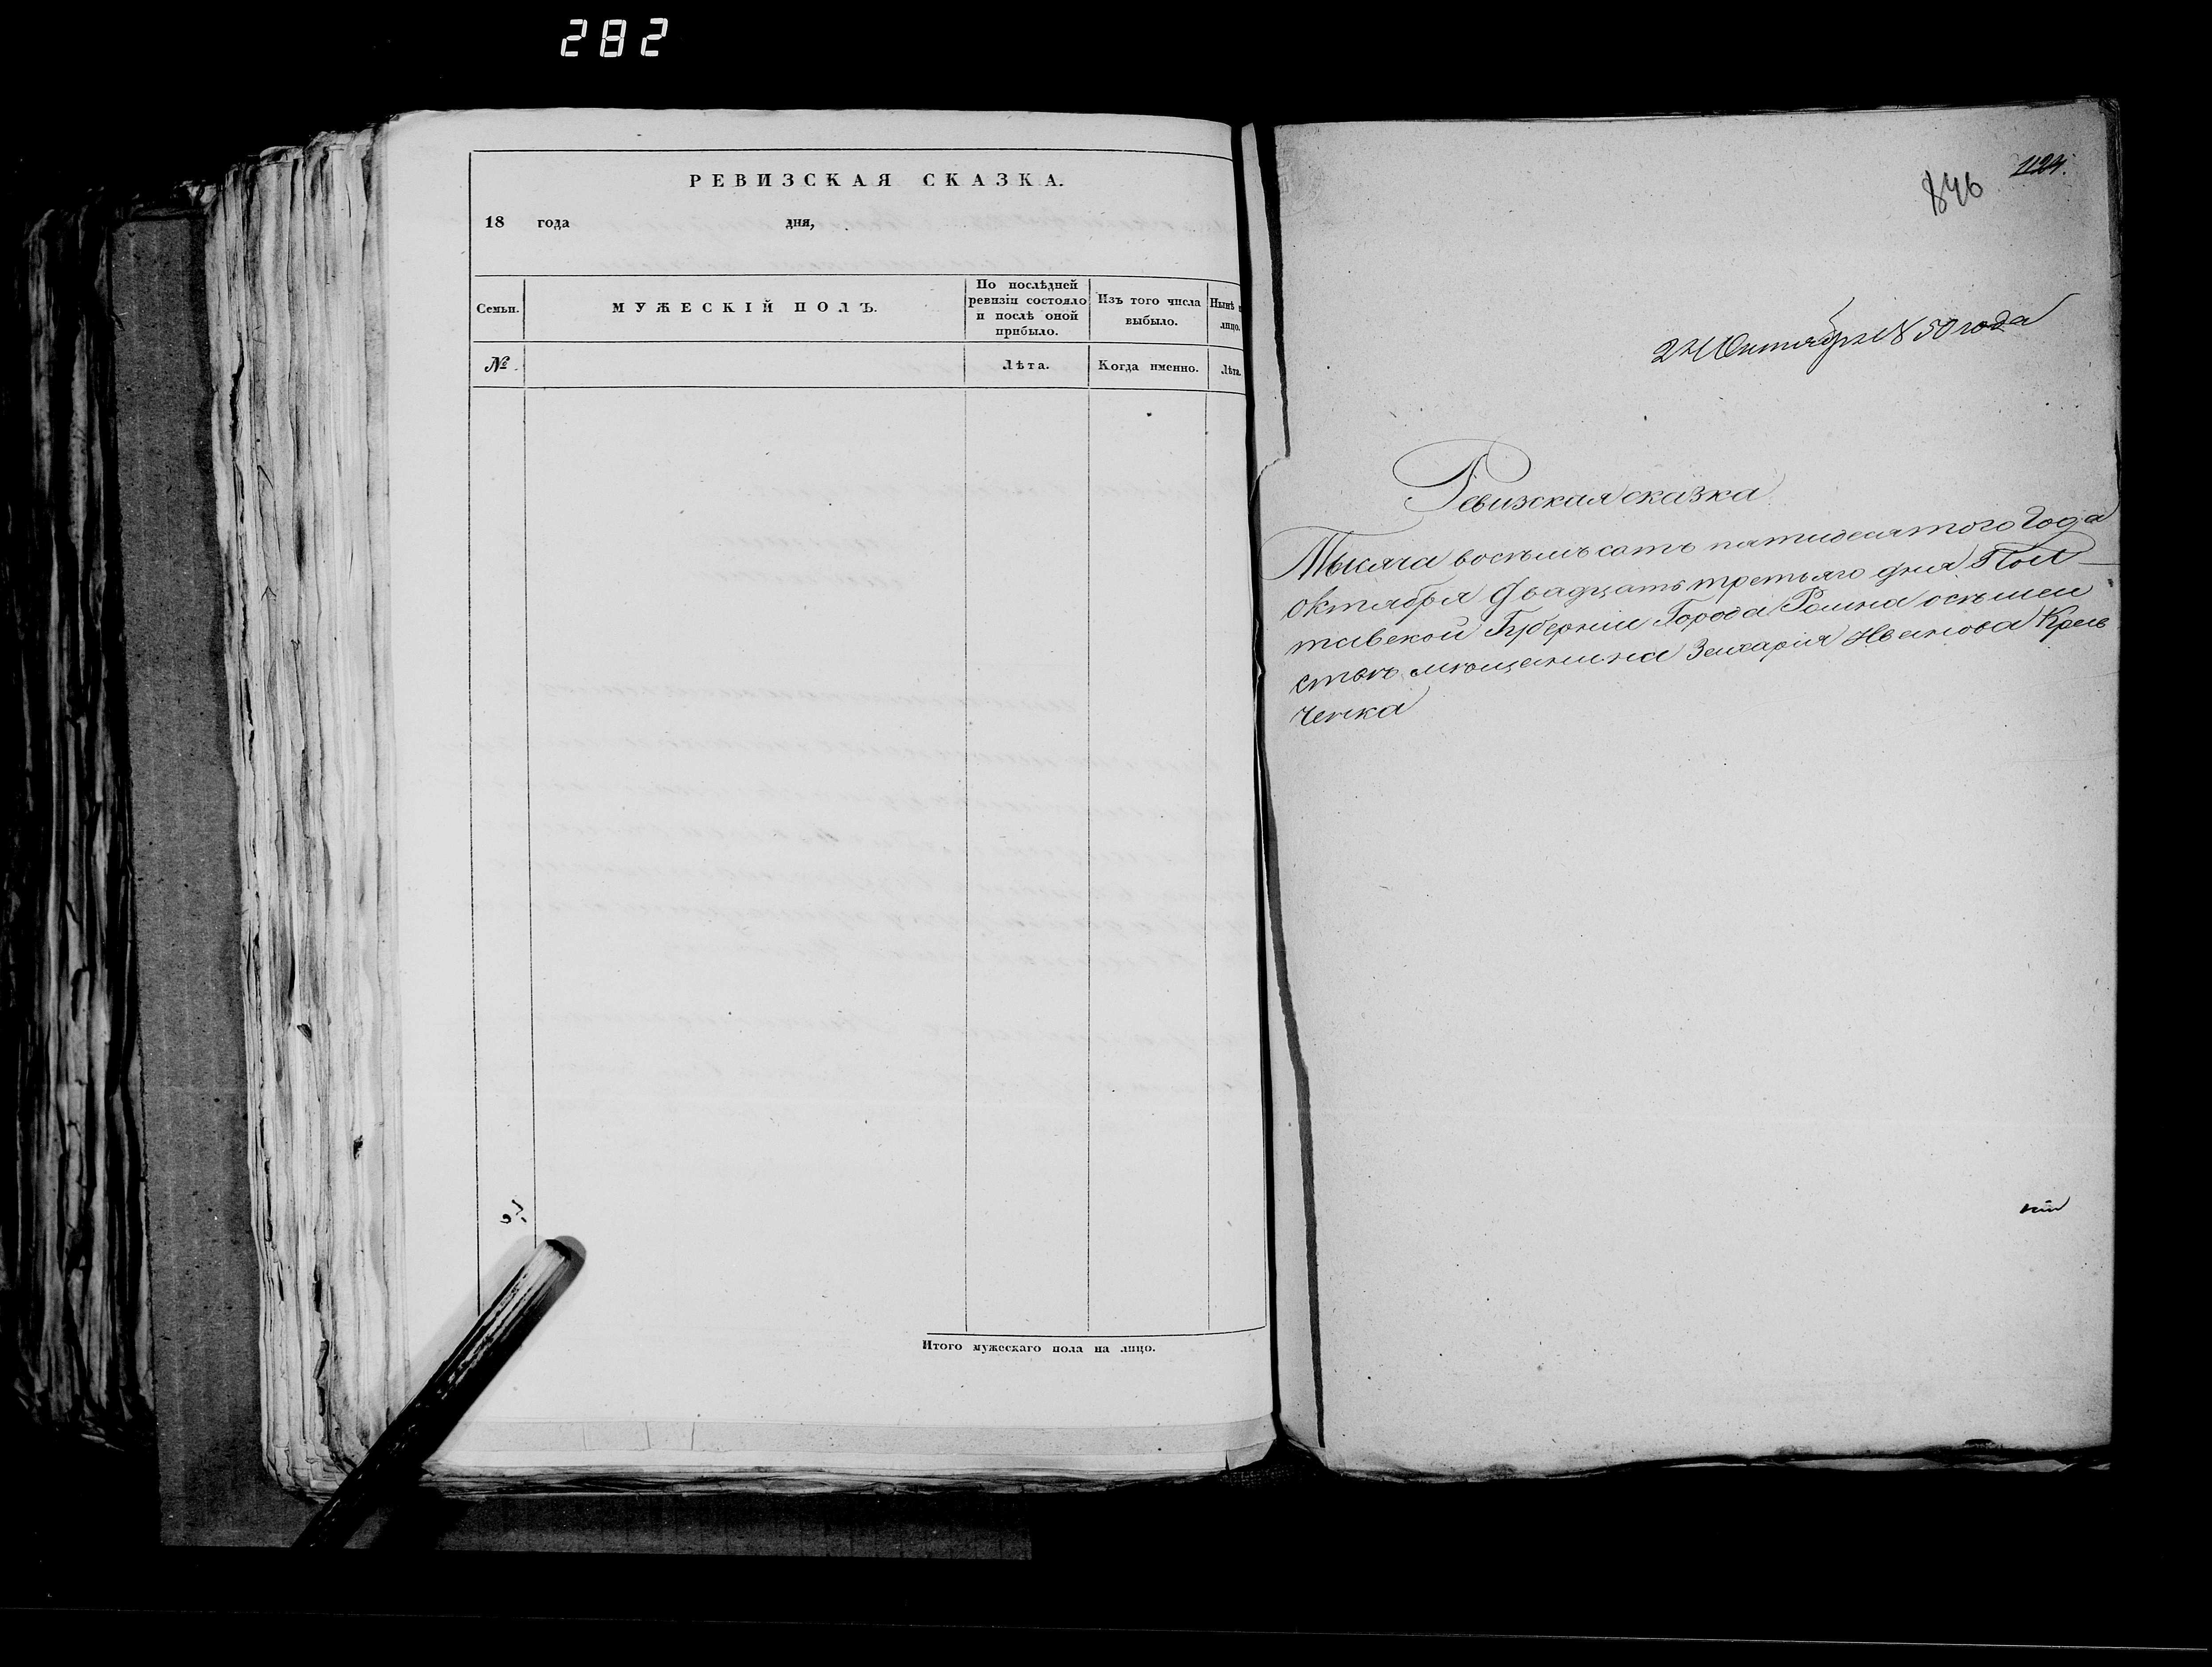 282
РЕВИЗСКАЯ СКАЗКА.
18 года дня,
Семьи.
МУЖЕСКІЙ ПОЛЪ.
По послѣдней
ревизіи состояло
и послѣ оной
прибыло.
Изъ того числа
выбыло.
Нынѣ
лицо.
№
Лѣта.
Когда именно.
Лѣта.
Итого мужескаго пола на лицо.
1124.
846
24 Октября 1850 года
Ревизская сказка
Тысяча восемьсотъ пятидесятого Года
Октября Двадцать третьяго дня Пол-
тавской Губерніи Города Ромна
мѣщанина Захарія Иванова
ченка